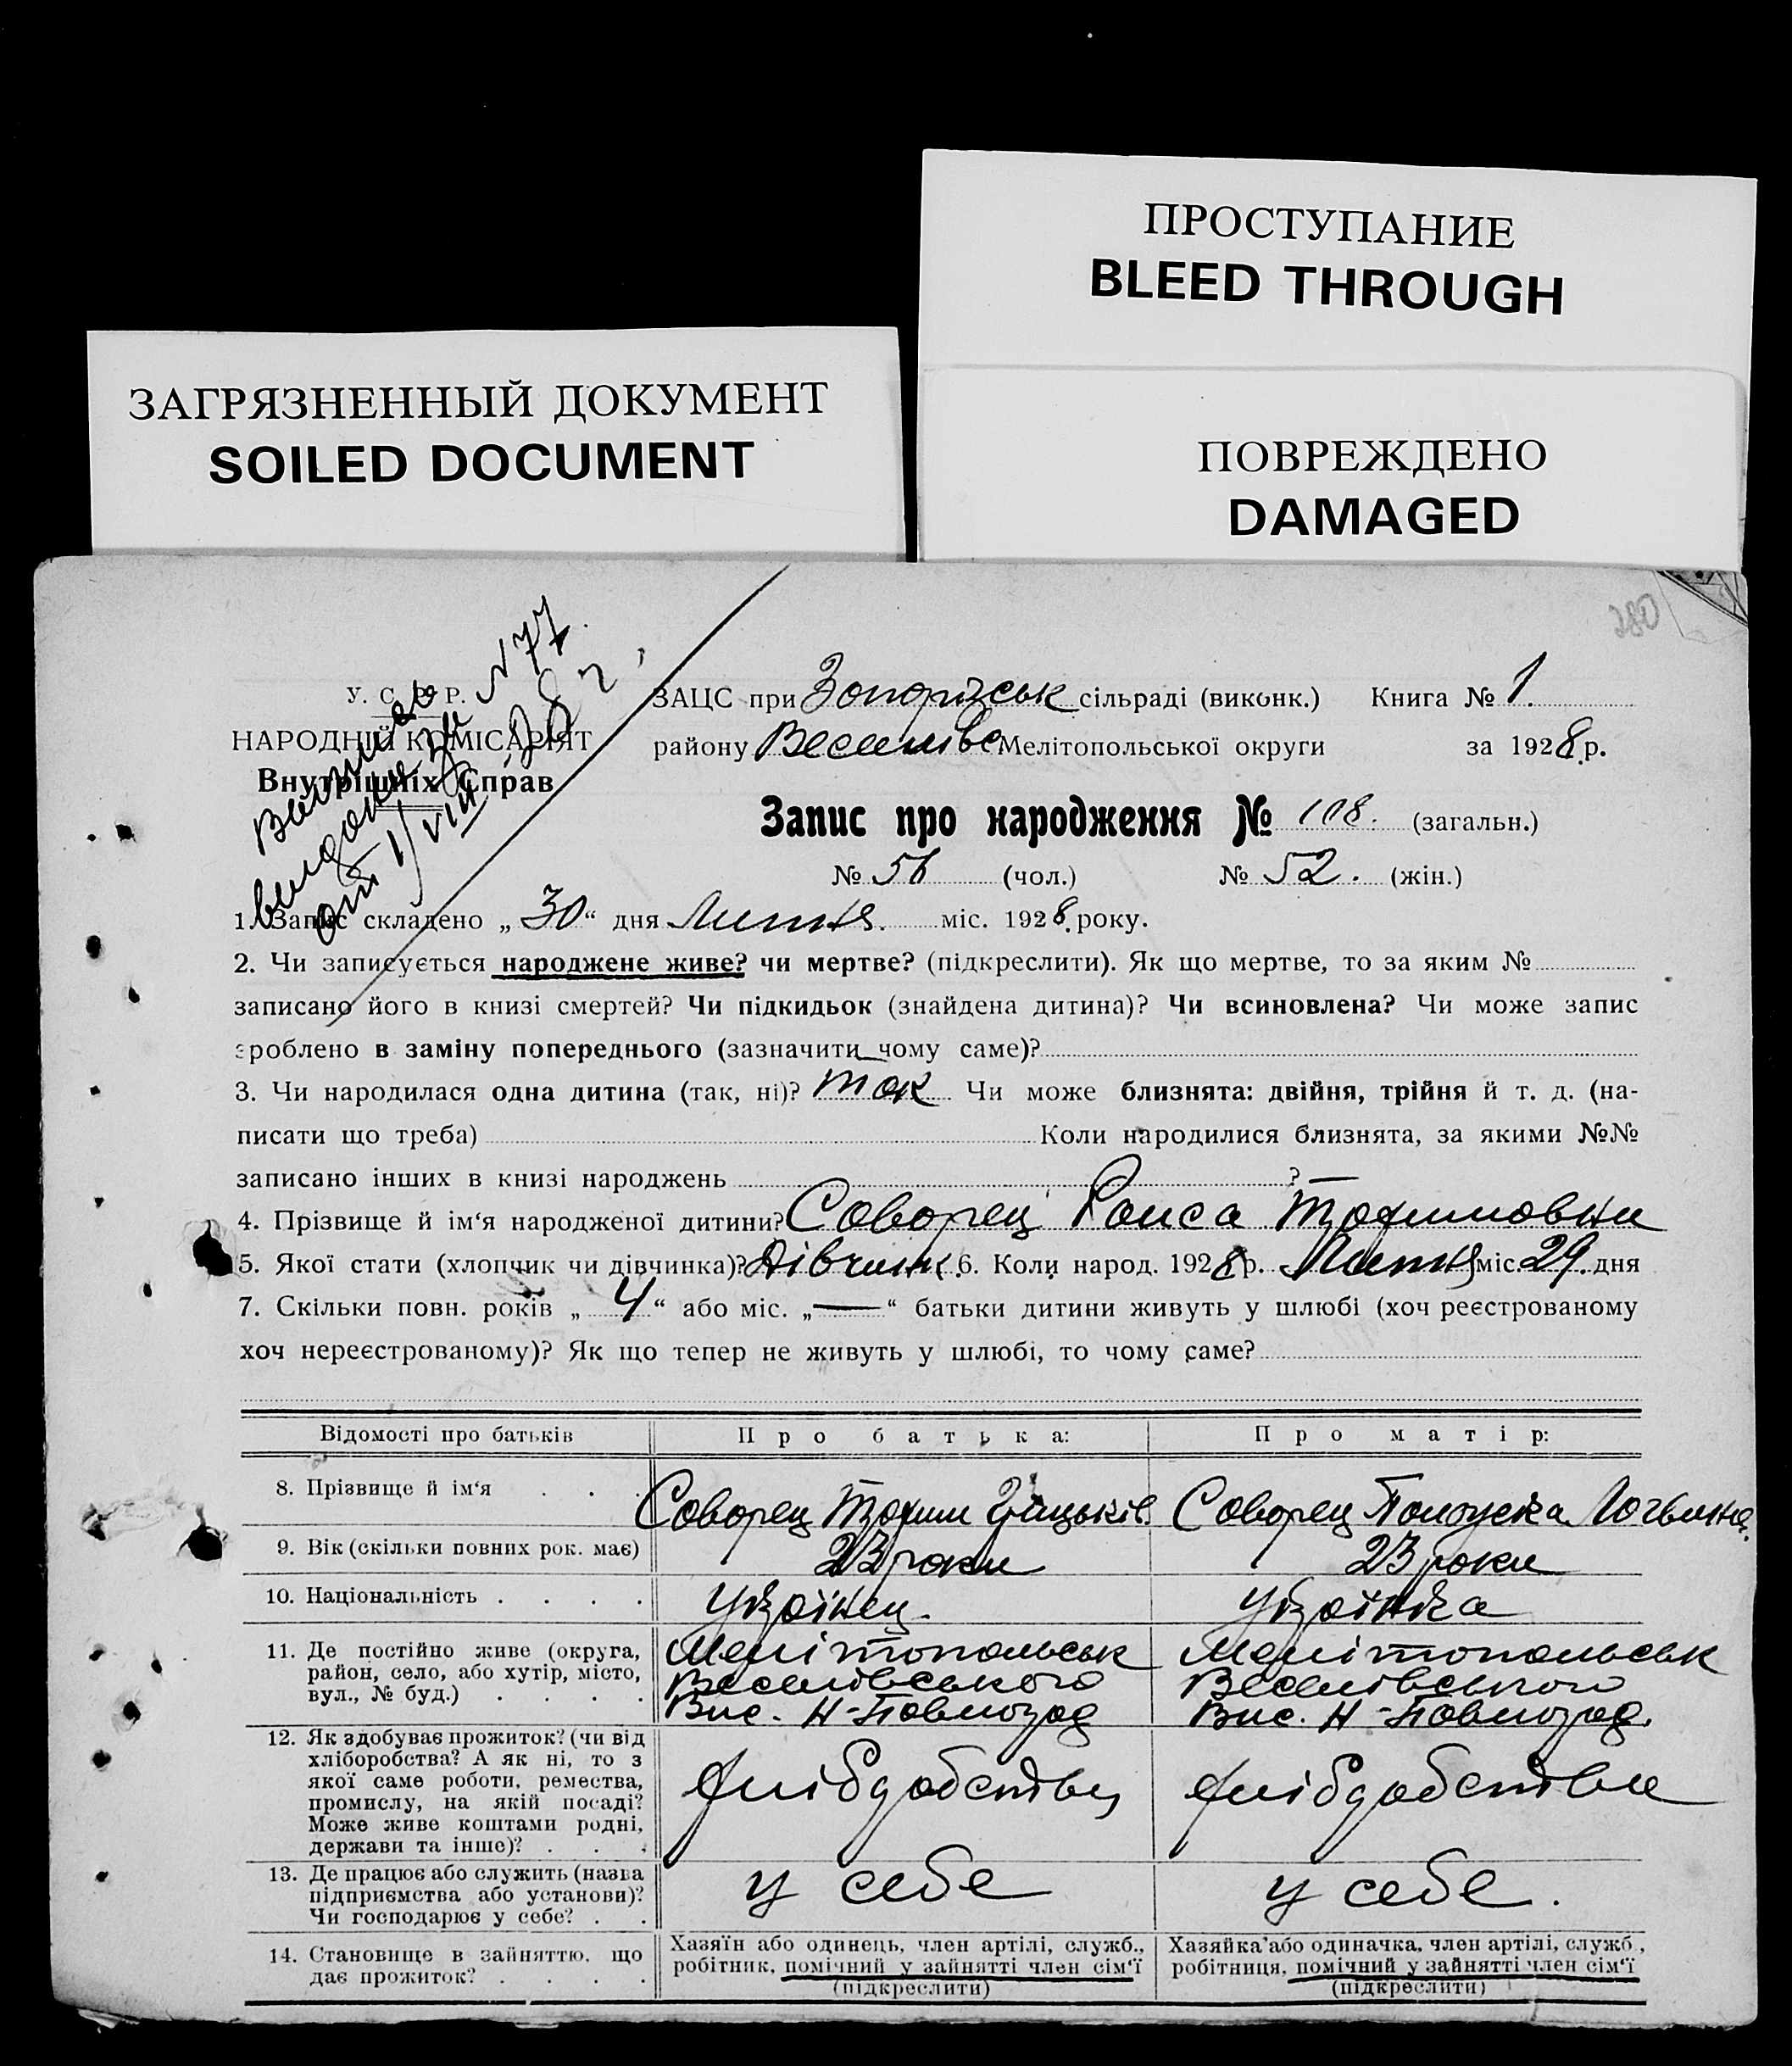 ПРОСТУПАНИЕ
BLEED THROUGH
ЗАГРЯЗНЕННЫЙ ДОКУМЕНТ
SOILED DOCUMENT
ПОВРЕЖДЕНО
DAMAGED
280
№ 77
У. С. Р. Р.
НАРОДНІЙ КОМІСАРІЯТ
Внутрішніх Справ
от 1/VIII 28 г.
ЗАЦС при Запорізськ сільраді (виконк.) Книга № 1.
району Веселівс Мелітопольської округи за 1928 р.
Запис про народження № 108. (загальн.)
№ 56 (чол.) № 52. (жін.)
1. Запис складено „30“ дня Липня. міс. 1928. року.
2. Чи записується народжене живе? чи мертве? (підкреслити). Як що мертве, то за яким №
записано його в книзі смертей? Чи підкидьок (знайдена дитина)? Чи всиновлена? Чи може запис
зроблено в заміну попереднього (зазначити чому саме)?
3. Чи народилася одна дитина (так, ні)? так Чи може близнята: двійня, трійня й т. д. (на-
писати що треба) Коли народилися близнята, за якими №№
записано інших в книзі народжень ?
4. Прізвище й ім'я народженої дитини? Саворец Раиса Трохимовни
5. Якої стати (хлопчик чи дівчинка)? Дівчинк. 6. Коли народ. 1928 р. Липня міс. 29. дня
7. Скільки повн. років „4“ або міс. „—“ батьки дитини живуть у шлюбі (хоч реєстрованому
хоч нереєстрованому)? Як що тепер не живуть у шлюбі, то чому саме?
Відомості про батьків Про батька: Про матір:
8. Прізвище й ім'я . . . Саворец Трохим Грицьків. Саворец
9. Вік (скільки повних рок. має) 23 роки 23 роки
10. Національність . . . . Українец. Українка
11. Де постійно живе (округа, район, село, або хутір, місто, вул., № буд.) . . . .
Мелітопольськ
Веселівського
Вис. Н-Павлоград
Мелітопольськ
Веселівського
Вис. Н-Павлоград.
12. Як здобуває прожиток? (чи від
хліборобства? А як ні, то з
якої саме роботи, ремества,
промислу, на якій посаді?
Може живе коштами родні,
держави та інше)? . . .
13. Де працює або служить (назва
підприємства або установи)?
Чи господарює у себе? . .
у себе
у себе.
14. Становище в зайняттю, що
дає прожиток? . . . .
Хазяїн або одинець, член артілі, служб.,
робітник, помічний у зайнятті член сім'ї
(підкреслити)
Хазяйка або одиначка, член артілі, служб.,
робітниця, помічний у зайнятті член сім'ї
(підкреслити)